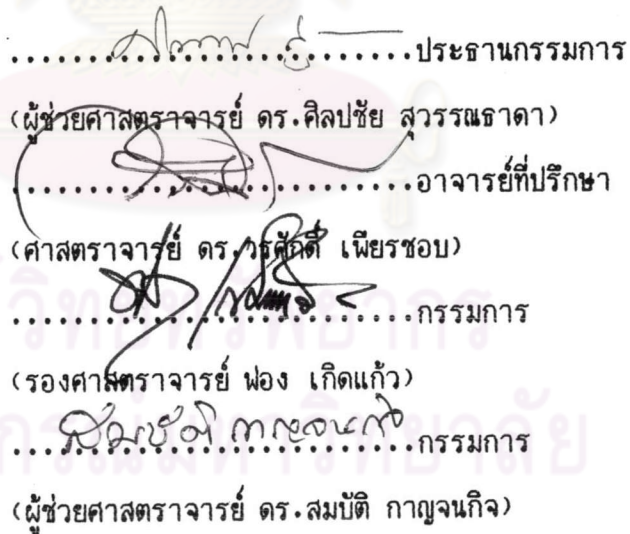 ....................ประธานกรรมการ
(ผู้ช่วยศาสตราจารย์ ดร.ศิลปชัย สุวรรณธาดา)
....................อาจารย์ที่ปรึกษา
(ศาสตราจารย์ ดร.วรศักดิ์ เพียรชอบ)
....................กรรมการ
(รองศาสตราจารย์ ฟอง เกิดแก้ว)
....................กรรมการ
(ผู้ช่วยศาสตราจารย์ ดร.สมบัติ กาญจนกิจ)